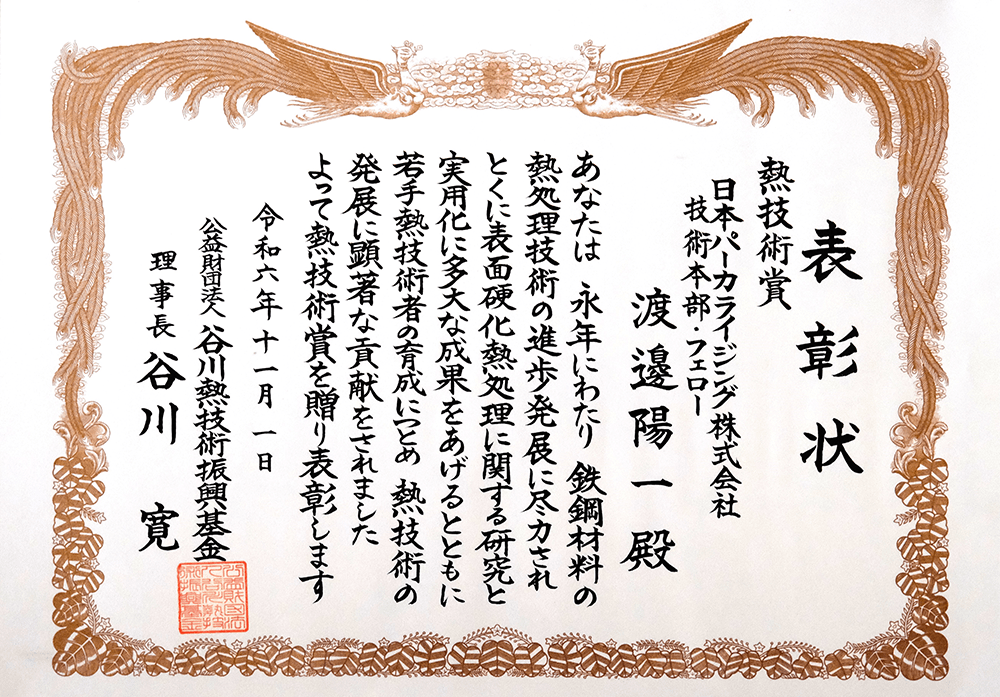 表彰状
熱技術賞
日本パーカライジング株式会社
技術本部・フェロー
渡邊陽一殿
あなたは 永年にわたり 鉄鋼材料の
熱処理技術の進歩発展に尽力され
とくに表面硬化熱処理に関する研究と
実用化に多大な成果をあげるとともに
若手熱技術者の育成につとめ 熱技術の
発展に顕著な貢献をされました
よって熱技術賞を贈り表彰します
令和六年十一月一日
公益財団法人 谷川熱技術振興基金
理事長 谷川 寛